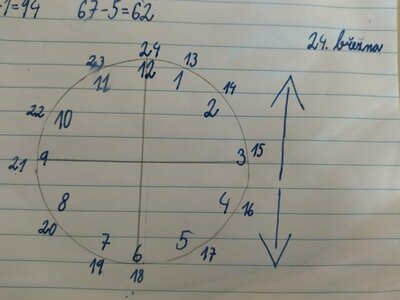 -1=94 67-5=62
24. března
24
23 12 13
11 1 14
22 10 2
21 9 3 15
8 4 16
20 7 5
19 6 17
18